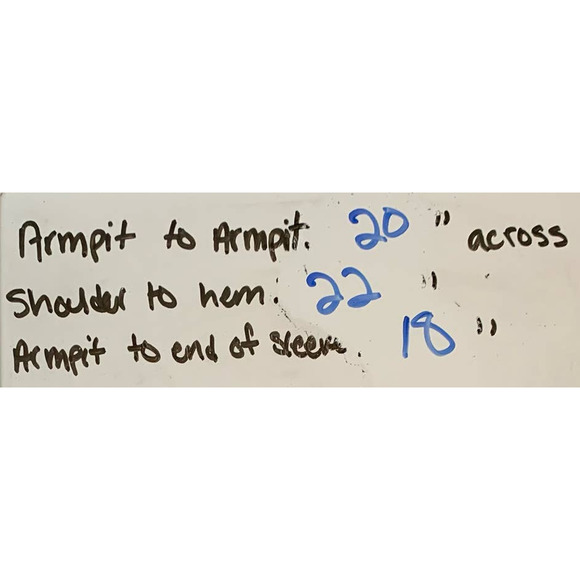 Armpit to Armpit: 20 " across
Shoulder to hem: 22 "
Armpit to end of sleeve. 18 "